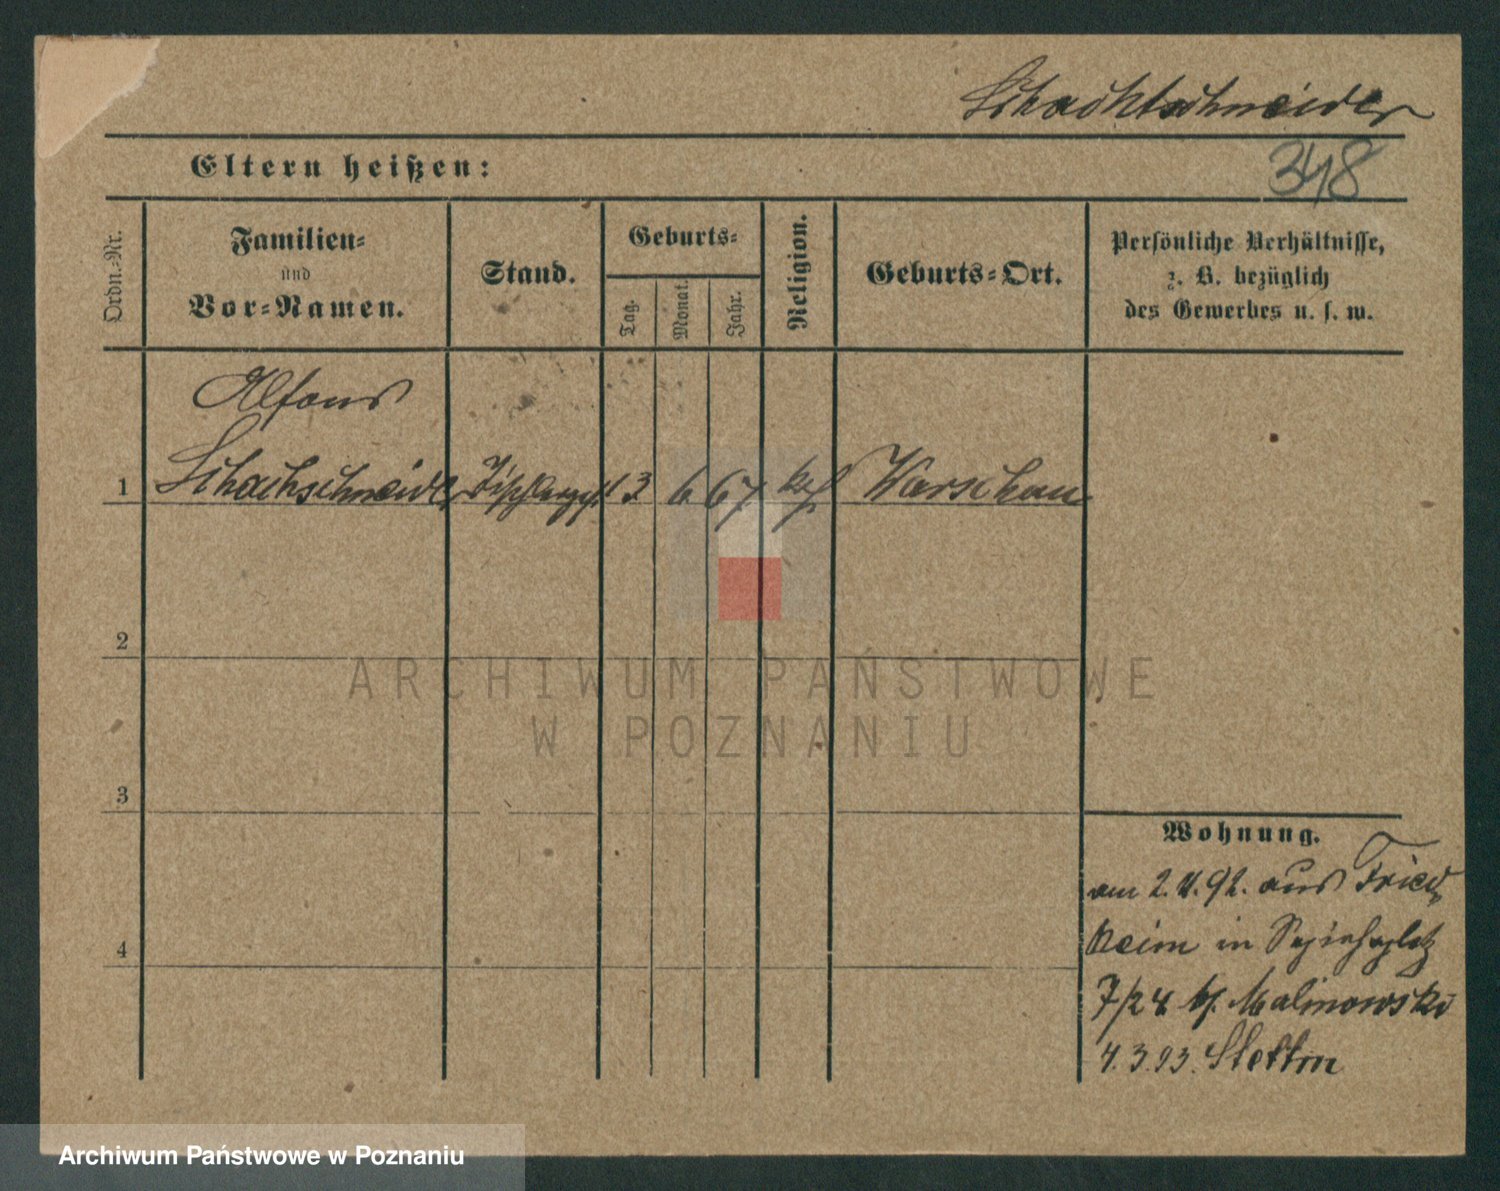 Schachtschneider
348
Eltern heißen:
Ordn.-Nr.
Familien-
und
Vor-Namen.
Stand.
Geburts-
Tag.
Monat.
Jahr.
Religion.
Geburts-Ort.
Persönliche Verhältnisse,
z. B. bezüglich
des Gewerbes u. s. w.
Alfons
1 Schachschneider 13 6 67 Warschau
2
3
4
Wohnung.
am 2. 92. aus Fried
heim in
7/24 bf. Malinowski
4.3.93. Stettin
ARCHIWUM PAŃSTWOWE
W POZNANIU
Archiwum Państwowe w Poznaniu